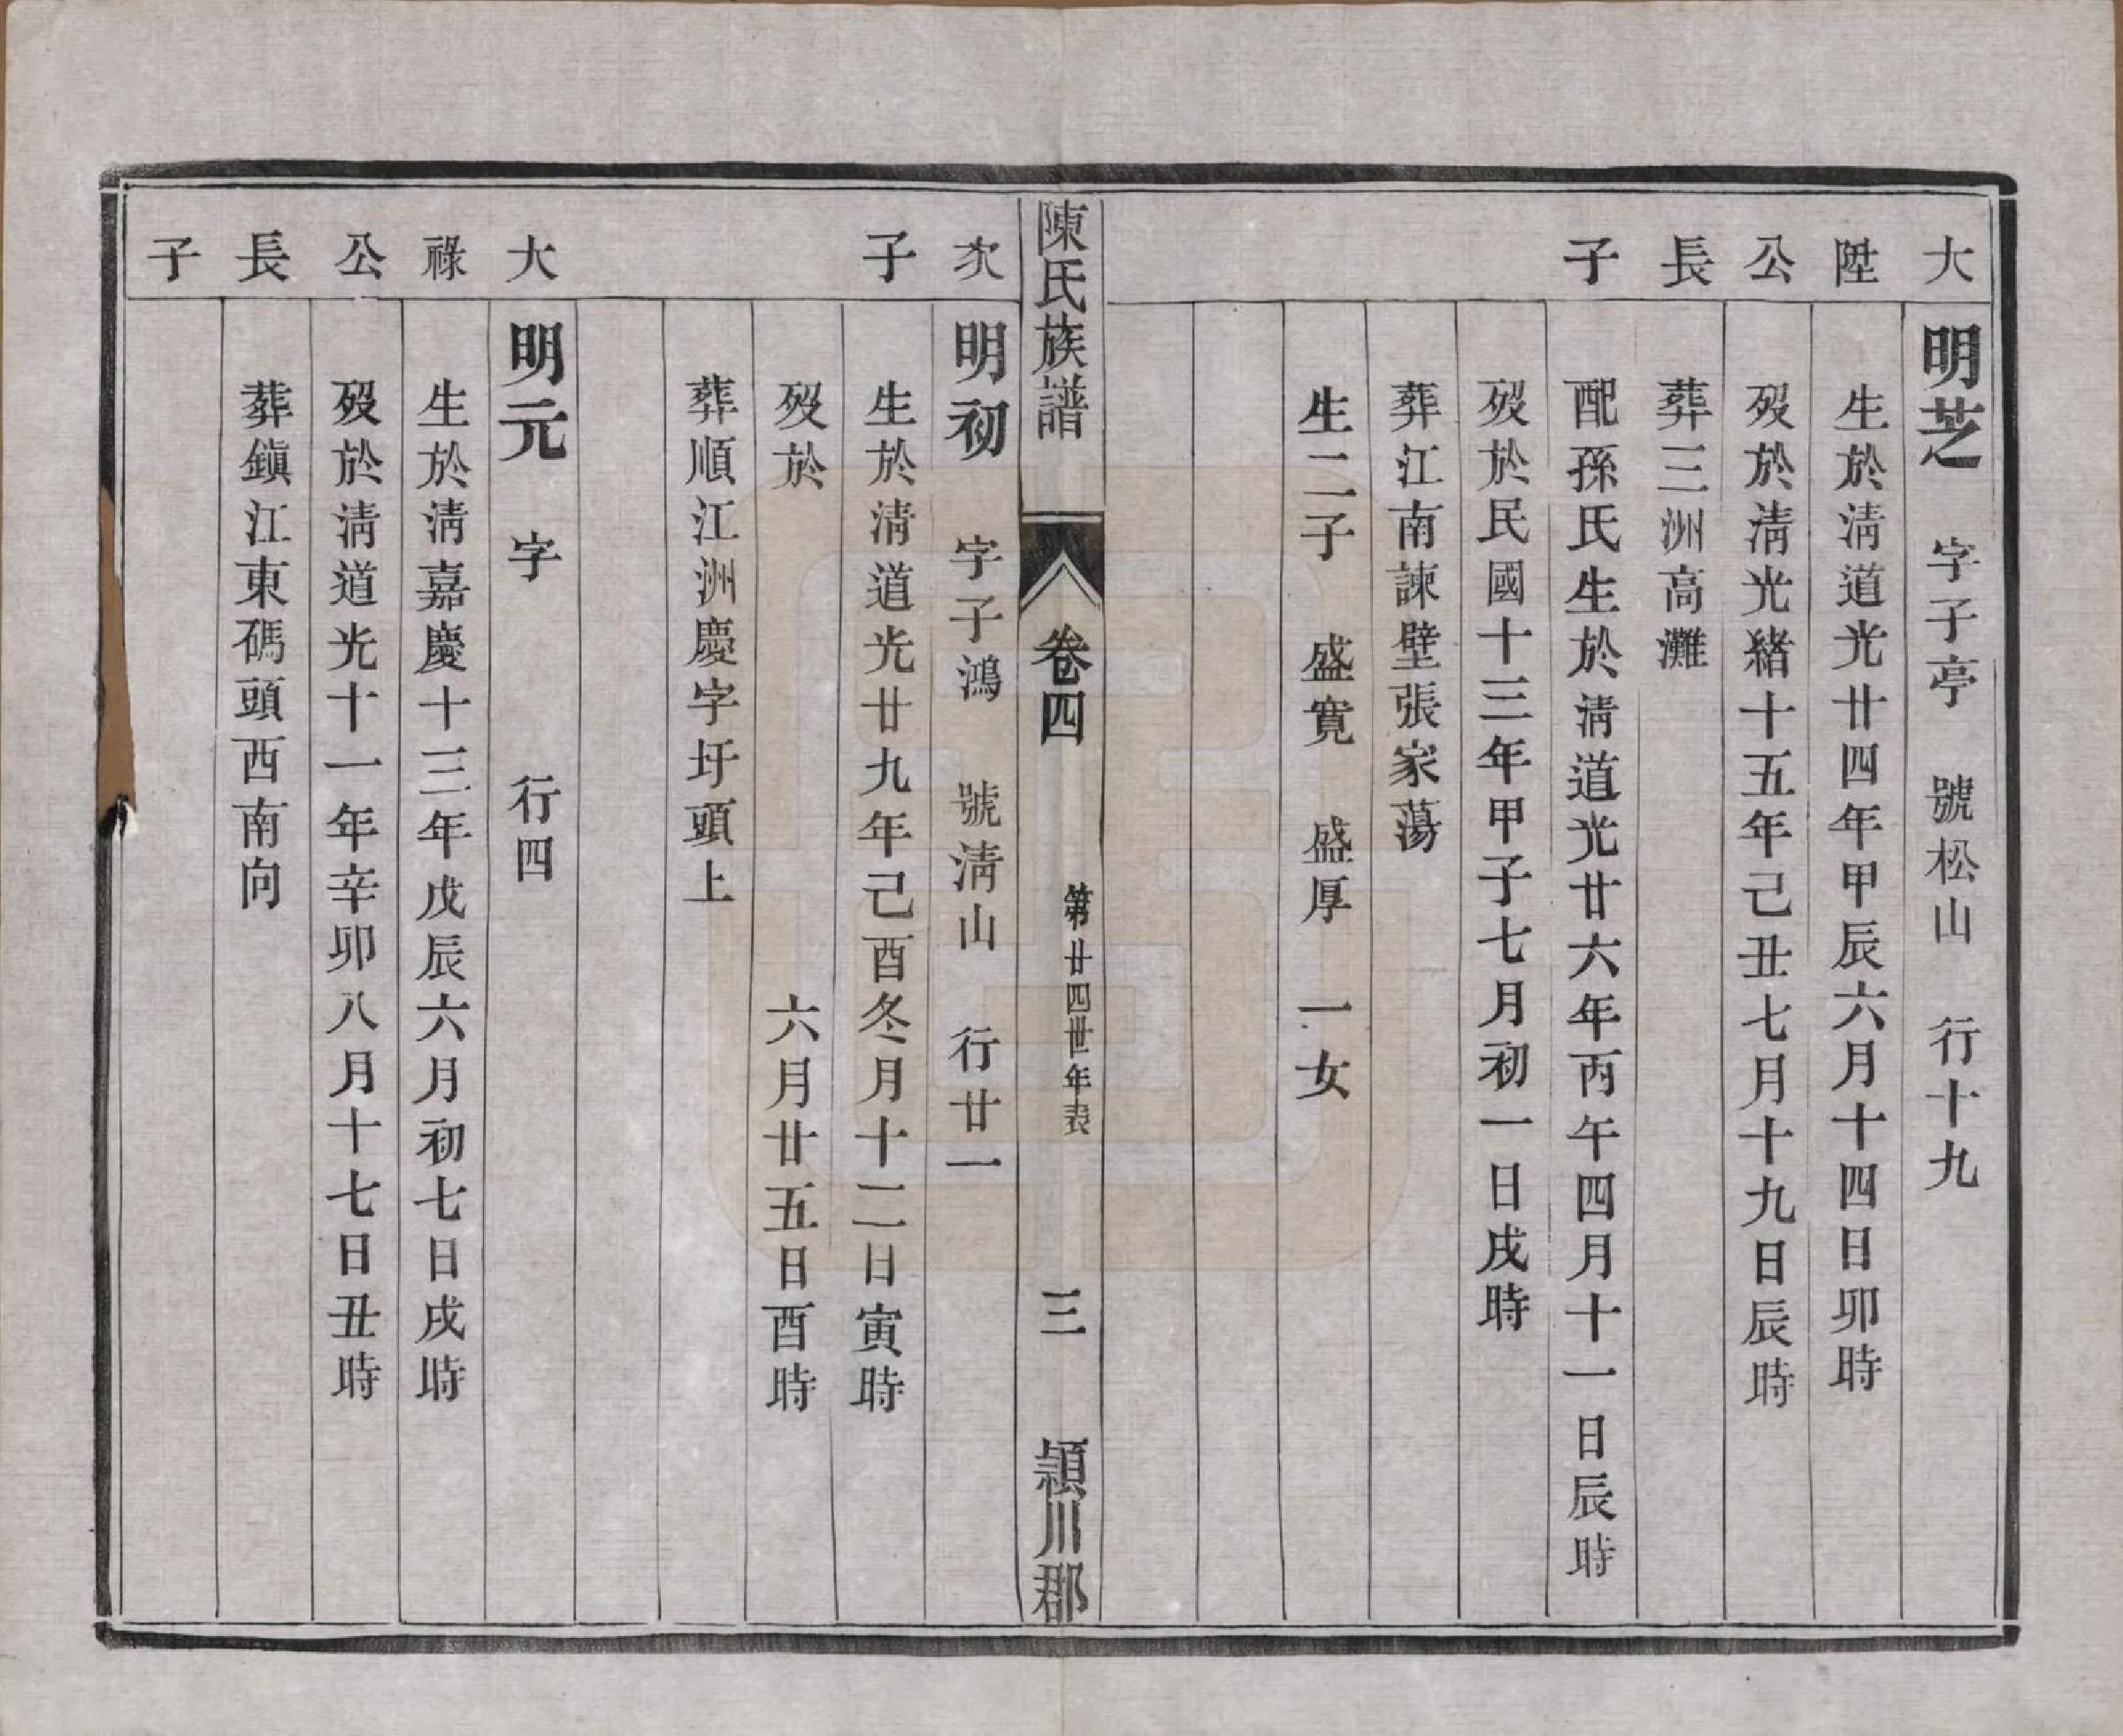 大陞公長子
明芝　字子亭　號松山　行十九
生於淸道光廿四年甲辰六月十四日卯時
歿於淸光緖十五年己丑七月十九日辰時
葬三洲高灘
配孫氏生於淸道光廿六年丙午四月十一日辰時
歿於民國十三年甲子七月初一日戌時
葬江南諫壁張家蕩
生二子　盛寬　盛厚　一女
陳氏族譜　卷四　第廿四世年表　三　潁川郡
次子
明初　字子鴻　號淸山　行廿一
生於淸道光廿九年己酉冬月十二日寅時
歿於　六月廿五日酉時
葬順江洲慶字圩頭上
大祿公長子
明元　字　行四
生於淸嘉慶十三年戊辰六月初七日戌時
歿於淸道光十一年辛卯八月十七日丑時
葬鎭江東碼頭西南向